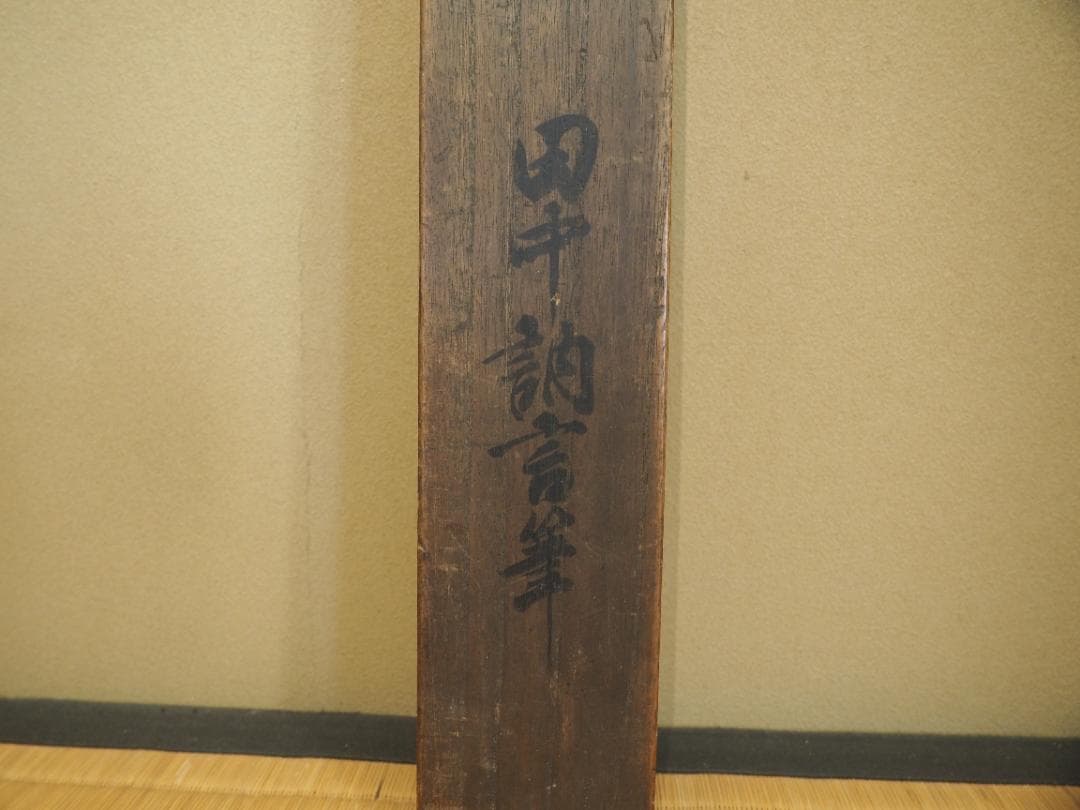 田中訥言筆